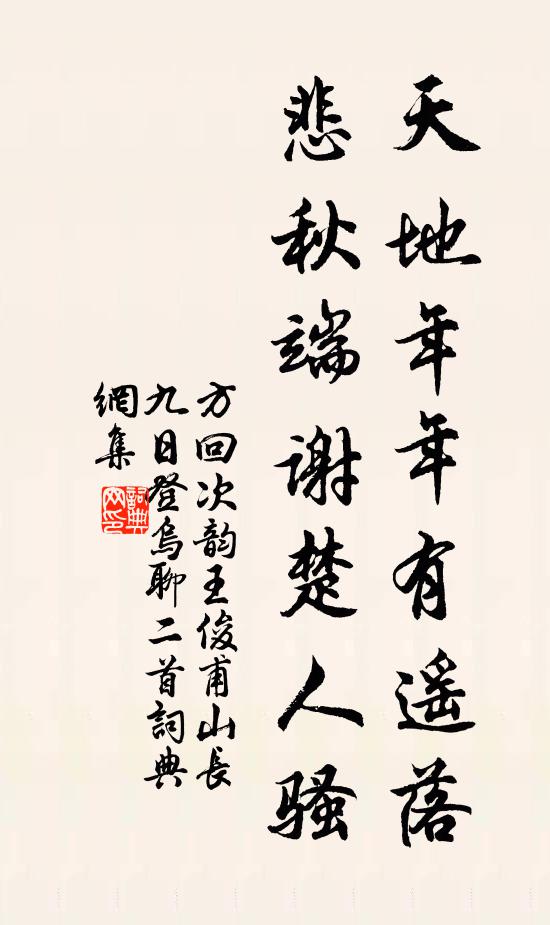 天地年年有遥落
悲秋端谢楚人骚
方回次韵王俊甫山长
九日登乌聊二首词典
網集
詞典網印